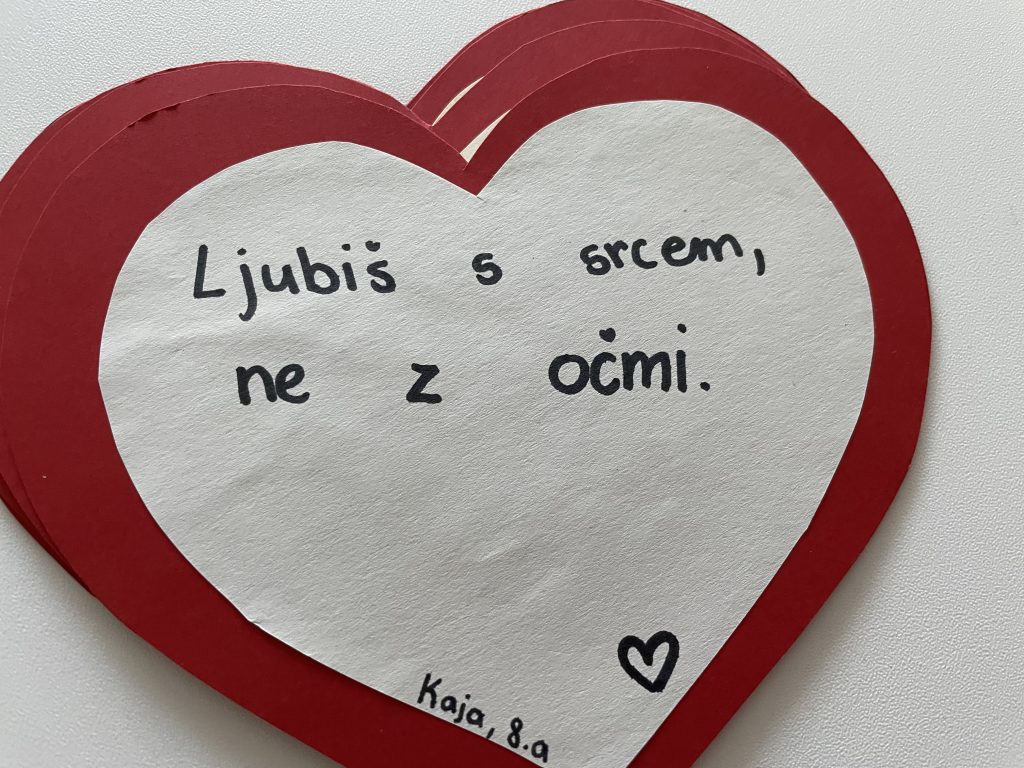 Ljubiš s srcem,
ne z očmi.
Kaja, 8.a